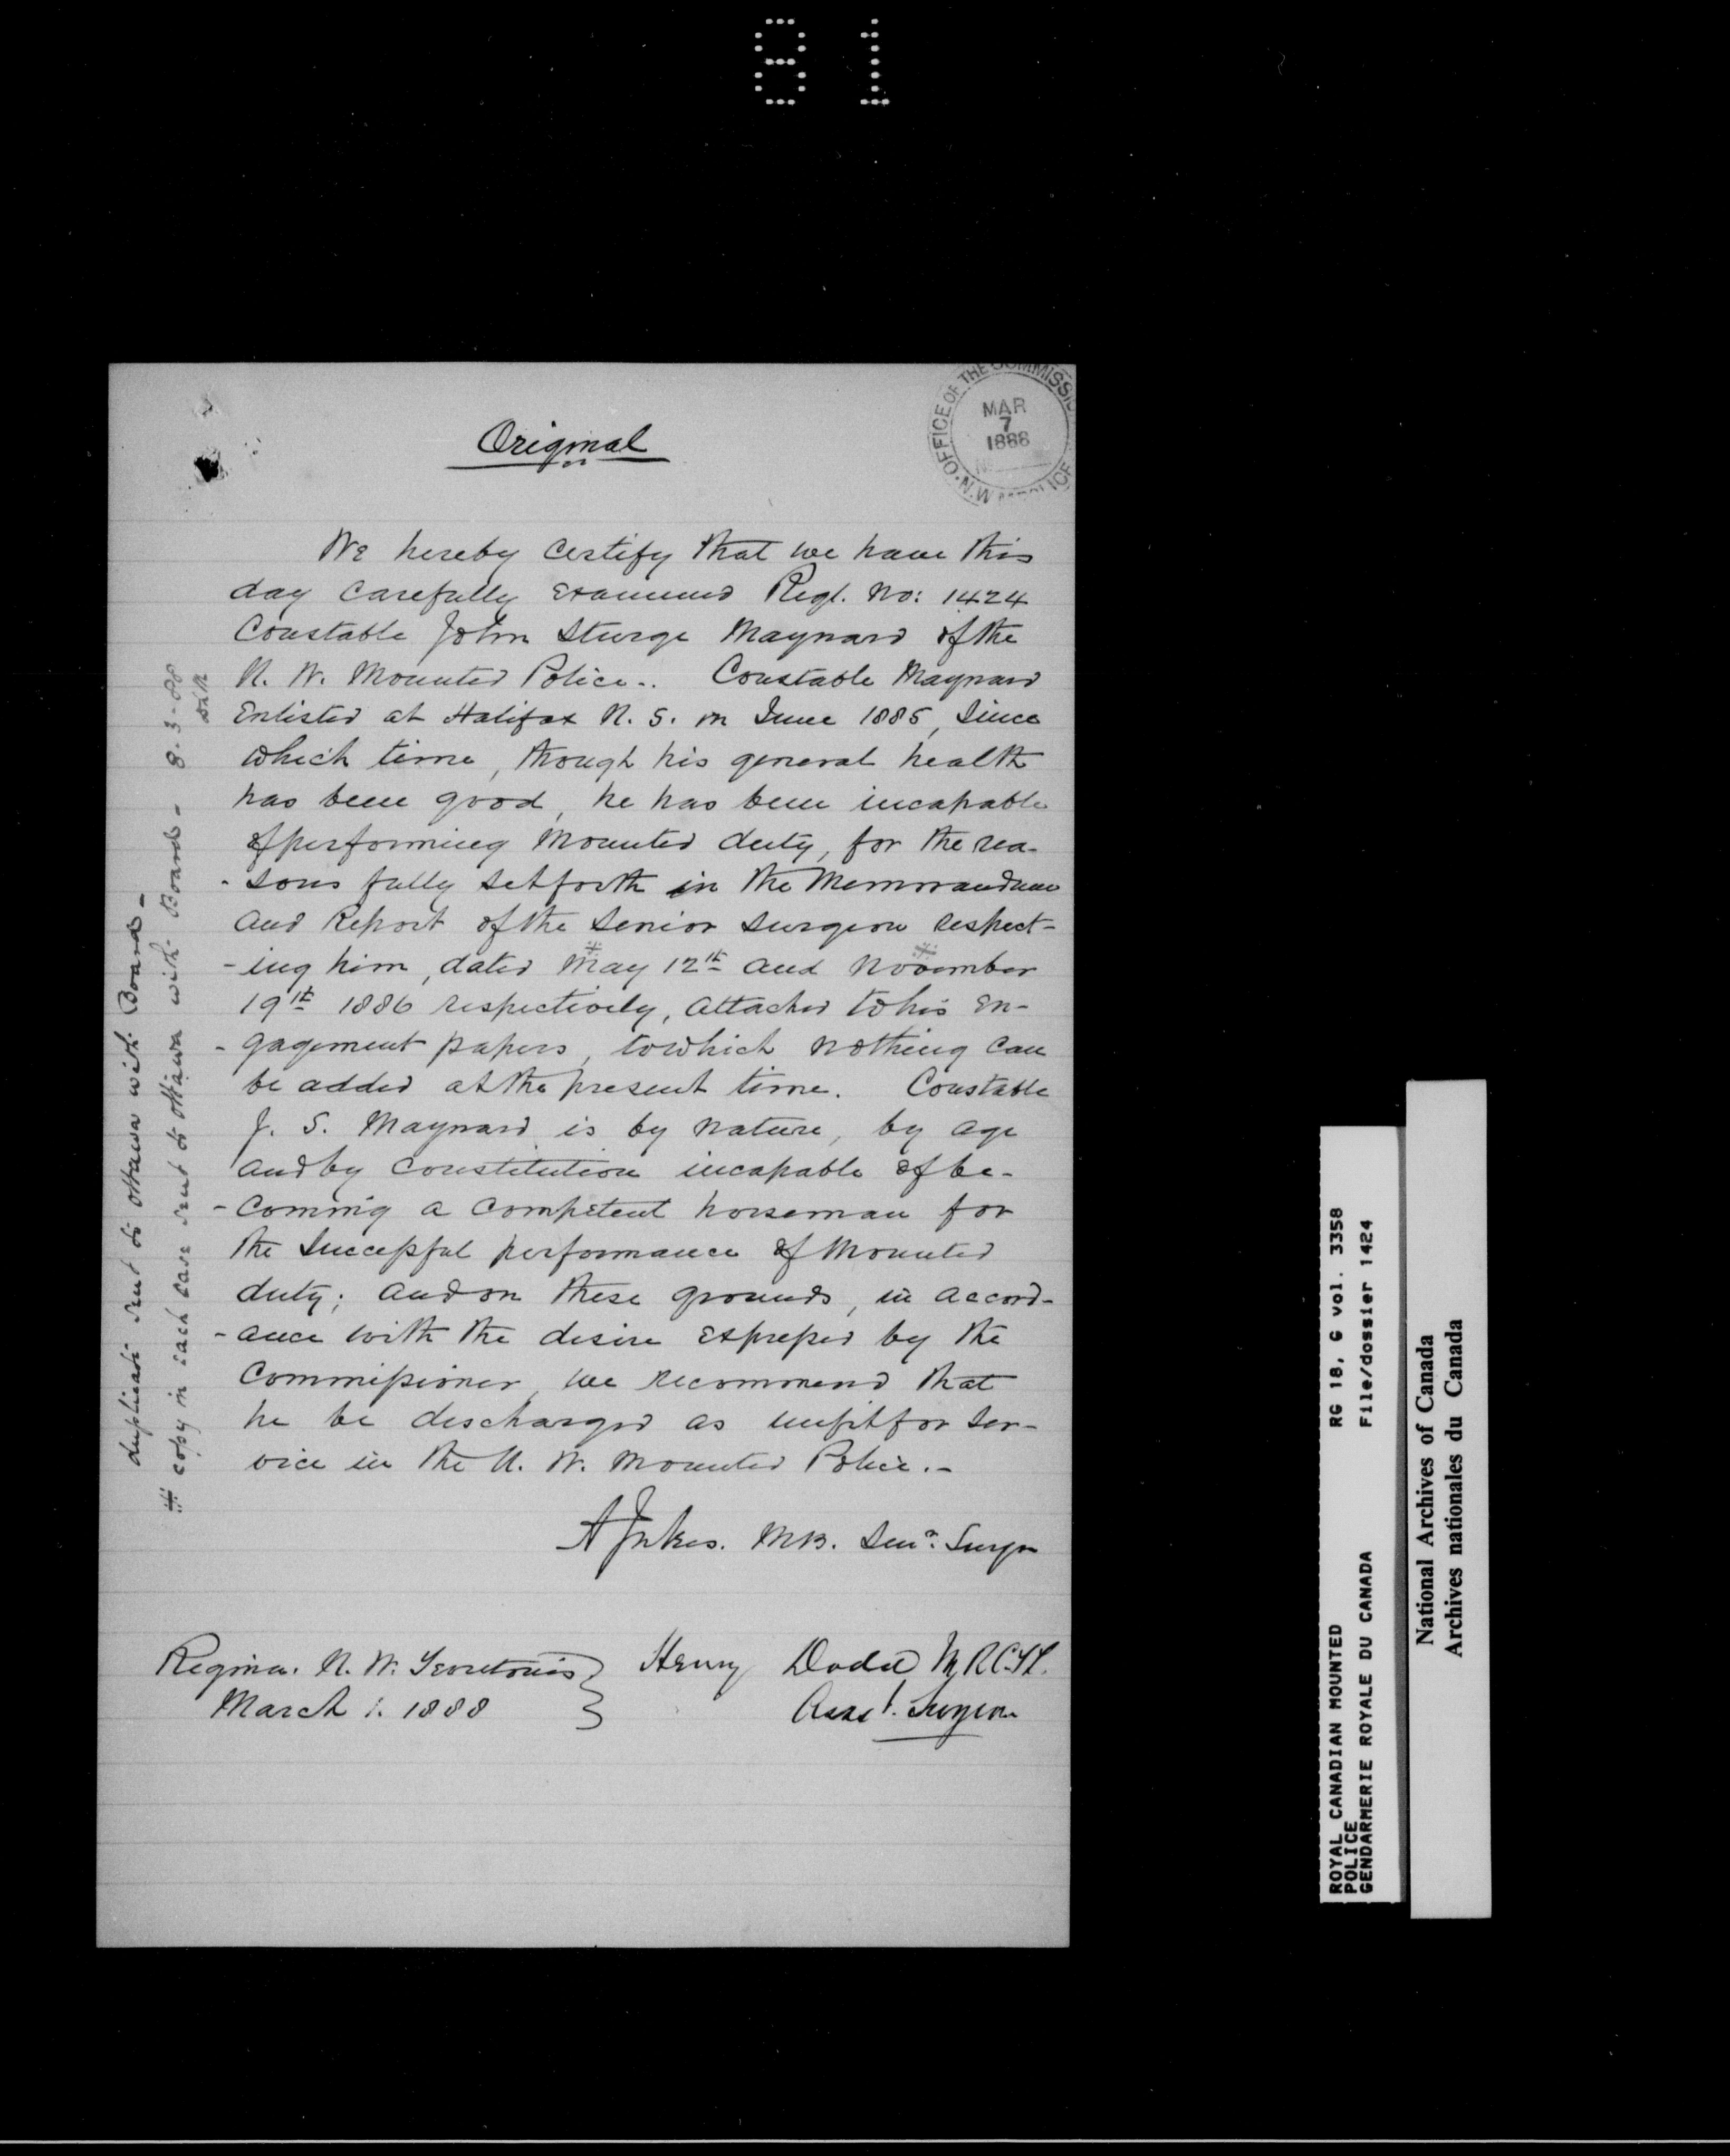 81
Original
OFFICE OF THE COMMISSIO
MAR
7
1888
N.W.
We hereby certify that we have this
day carefully examined Regl. No: 1424
Constable John Sturge Maynard of the
N. W. Mounted Police.. Constable Maynard
enlisted at Halifax N. S. in June 1885, since
which time, though his general health
has been good, he has been incapable
of performing mounted duty, for the rea-
- sons fully set forth in the Memorandum
and Report of the Senior Surgeon respect-
- ing him, dated May 12th and November
19th 1886 respectively, attached to his en-
- gagement papers, to which nothing can
be added at the present time. Constable
J. S. Maynard is by nature, by age
and by constitution incapable of be-
- coming a competent horseman for
the successful performance of mounted
duty; and on these grounds, in accord-
- ance with the desire expressed by the
Commissioner, we recommend that
he be discharged as unfit for ser-
vice in the N. W. Mounted Police.-
A Jukes. MB. Senr. Surgn
Regina. N. W. Territories
March 1. 1888
Henry Dodd M.R.C.S.
Asst. Surgeon
duplicate sent to Ottawa with Board -
# copy in each case sent to Ottawa with Board - 8-3-88
ROYAL CANADIAN MOUNTED RG 18, G vol. 3358
POLICE
GENDARMERIE ROYALE DU CANADA File/dossier 1424
National Archives of Canada
Archives nationales du Canada